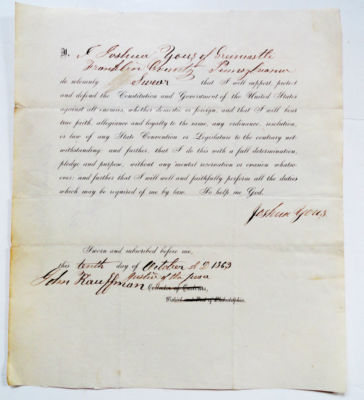 I, Joshua Yous of Greencastle
Franklin County Pennsylvania
do solemnly Swear that I will support, protect
and defend the Constitution and Government of the United States
against all enemies, whether domestic or foreign, and that I will bear
true faith, allegiance and loyalty to the same, any ordinance, resolution,
or law of any State Convention or Legislature to the contrary not-
withstanding: and further, that I do this with a full determination,
pledge and purpose, without any mental reservation or evasion whatso-
ever; and further that I will well and faithfully perform all the duties
which may be required of me by law. So help me God.
Joshua Yous
Sworn and subscribed before me,
this tenth day of October A D 1863
John Kauffman Justice of the peace
Collector of Customs,
District and Port of Philadelphia.